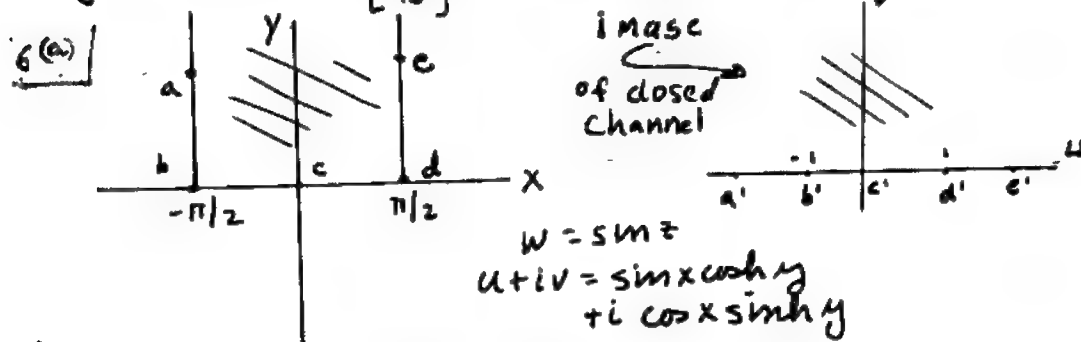 6(a)
y
a
e
b
c
d
x
-π/2
π/2
image
of closed
channel
u
-1
1
a'
b'
c'
d'
e'
w = sin z
u+iv = sin x cosh y
+i cos x sinh y